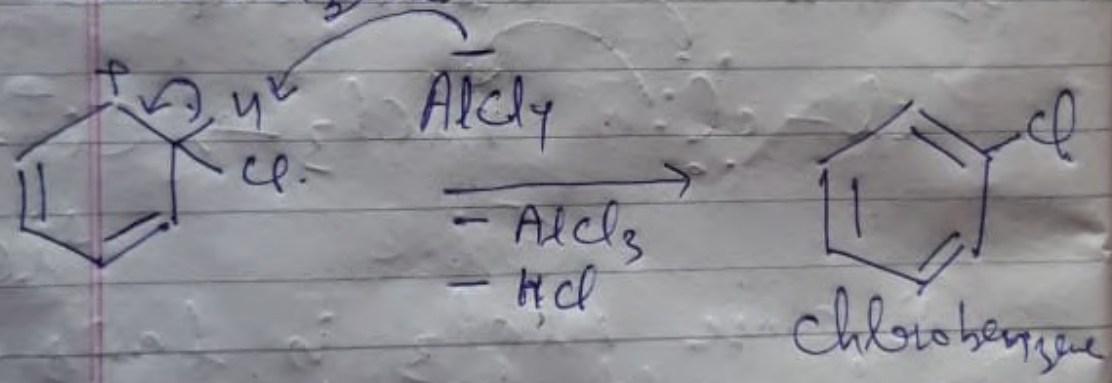 +
H
Cl.
AlCl4
−
→
− AlCl3
− HCl
Cl
Chlorobenzene